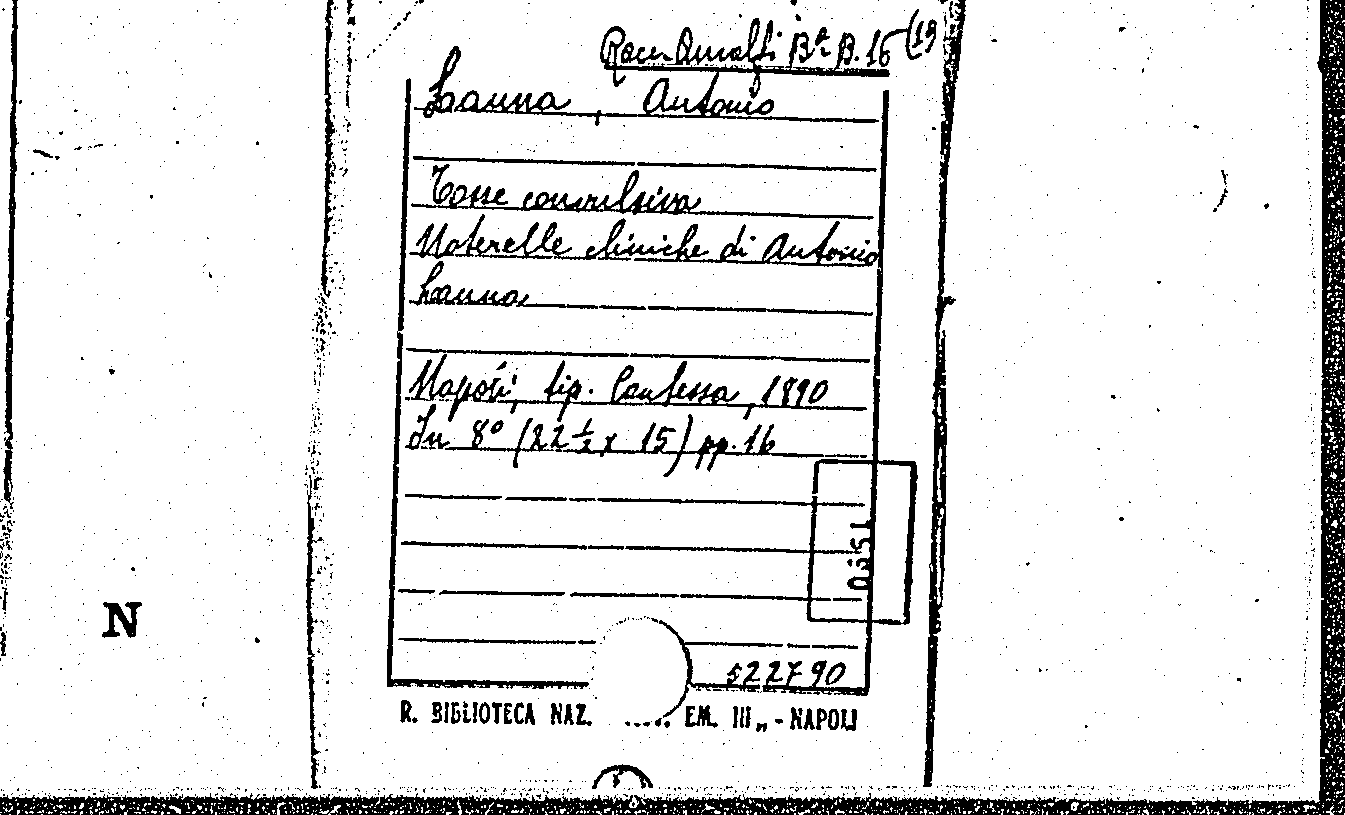 Racc. Amalfi Bª B. 16 (19
Lanna, Antonio
Tosse convulsiva
Noterelle cliniche di Antonio
Lanna
Napoli, tip. Contessa, 1890
In 8° (22 ½ x 15) pp. 16
N
522790
R. BIBLIOTECA NAZ. ..... EM. III„ - NAPOLI